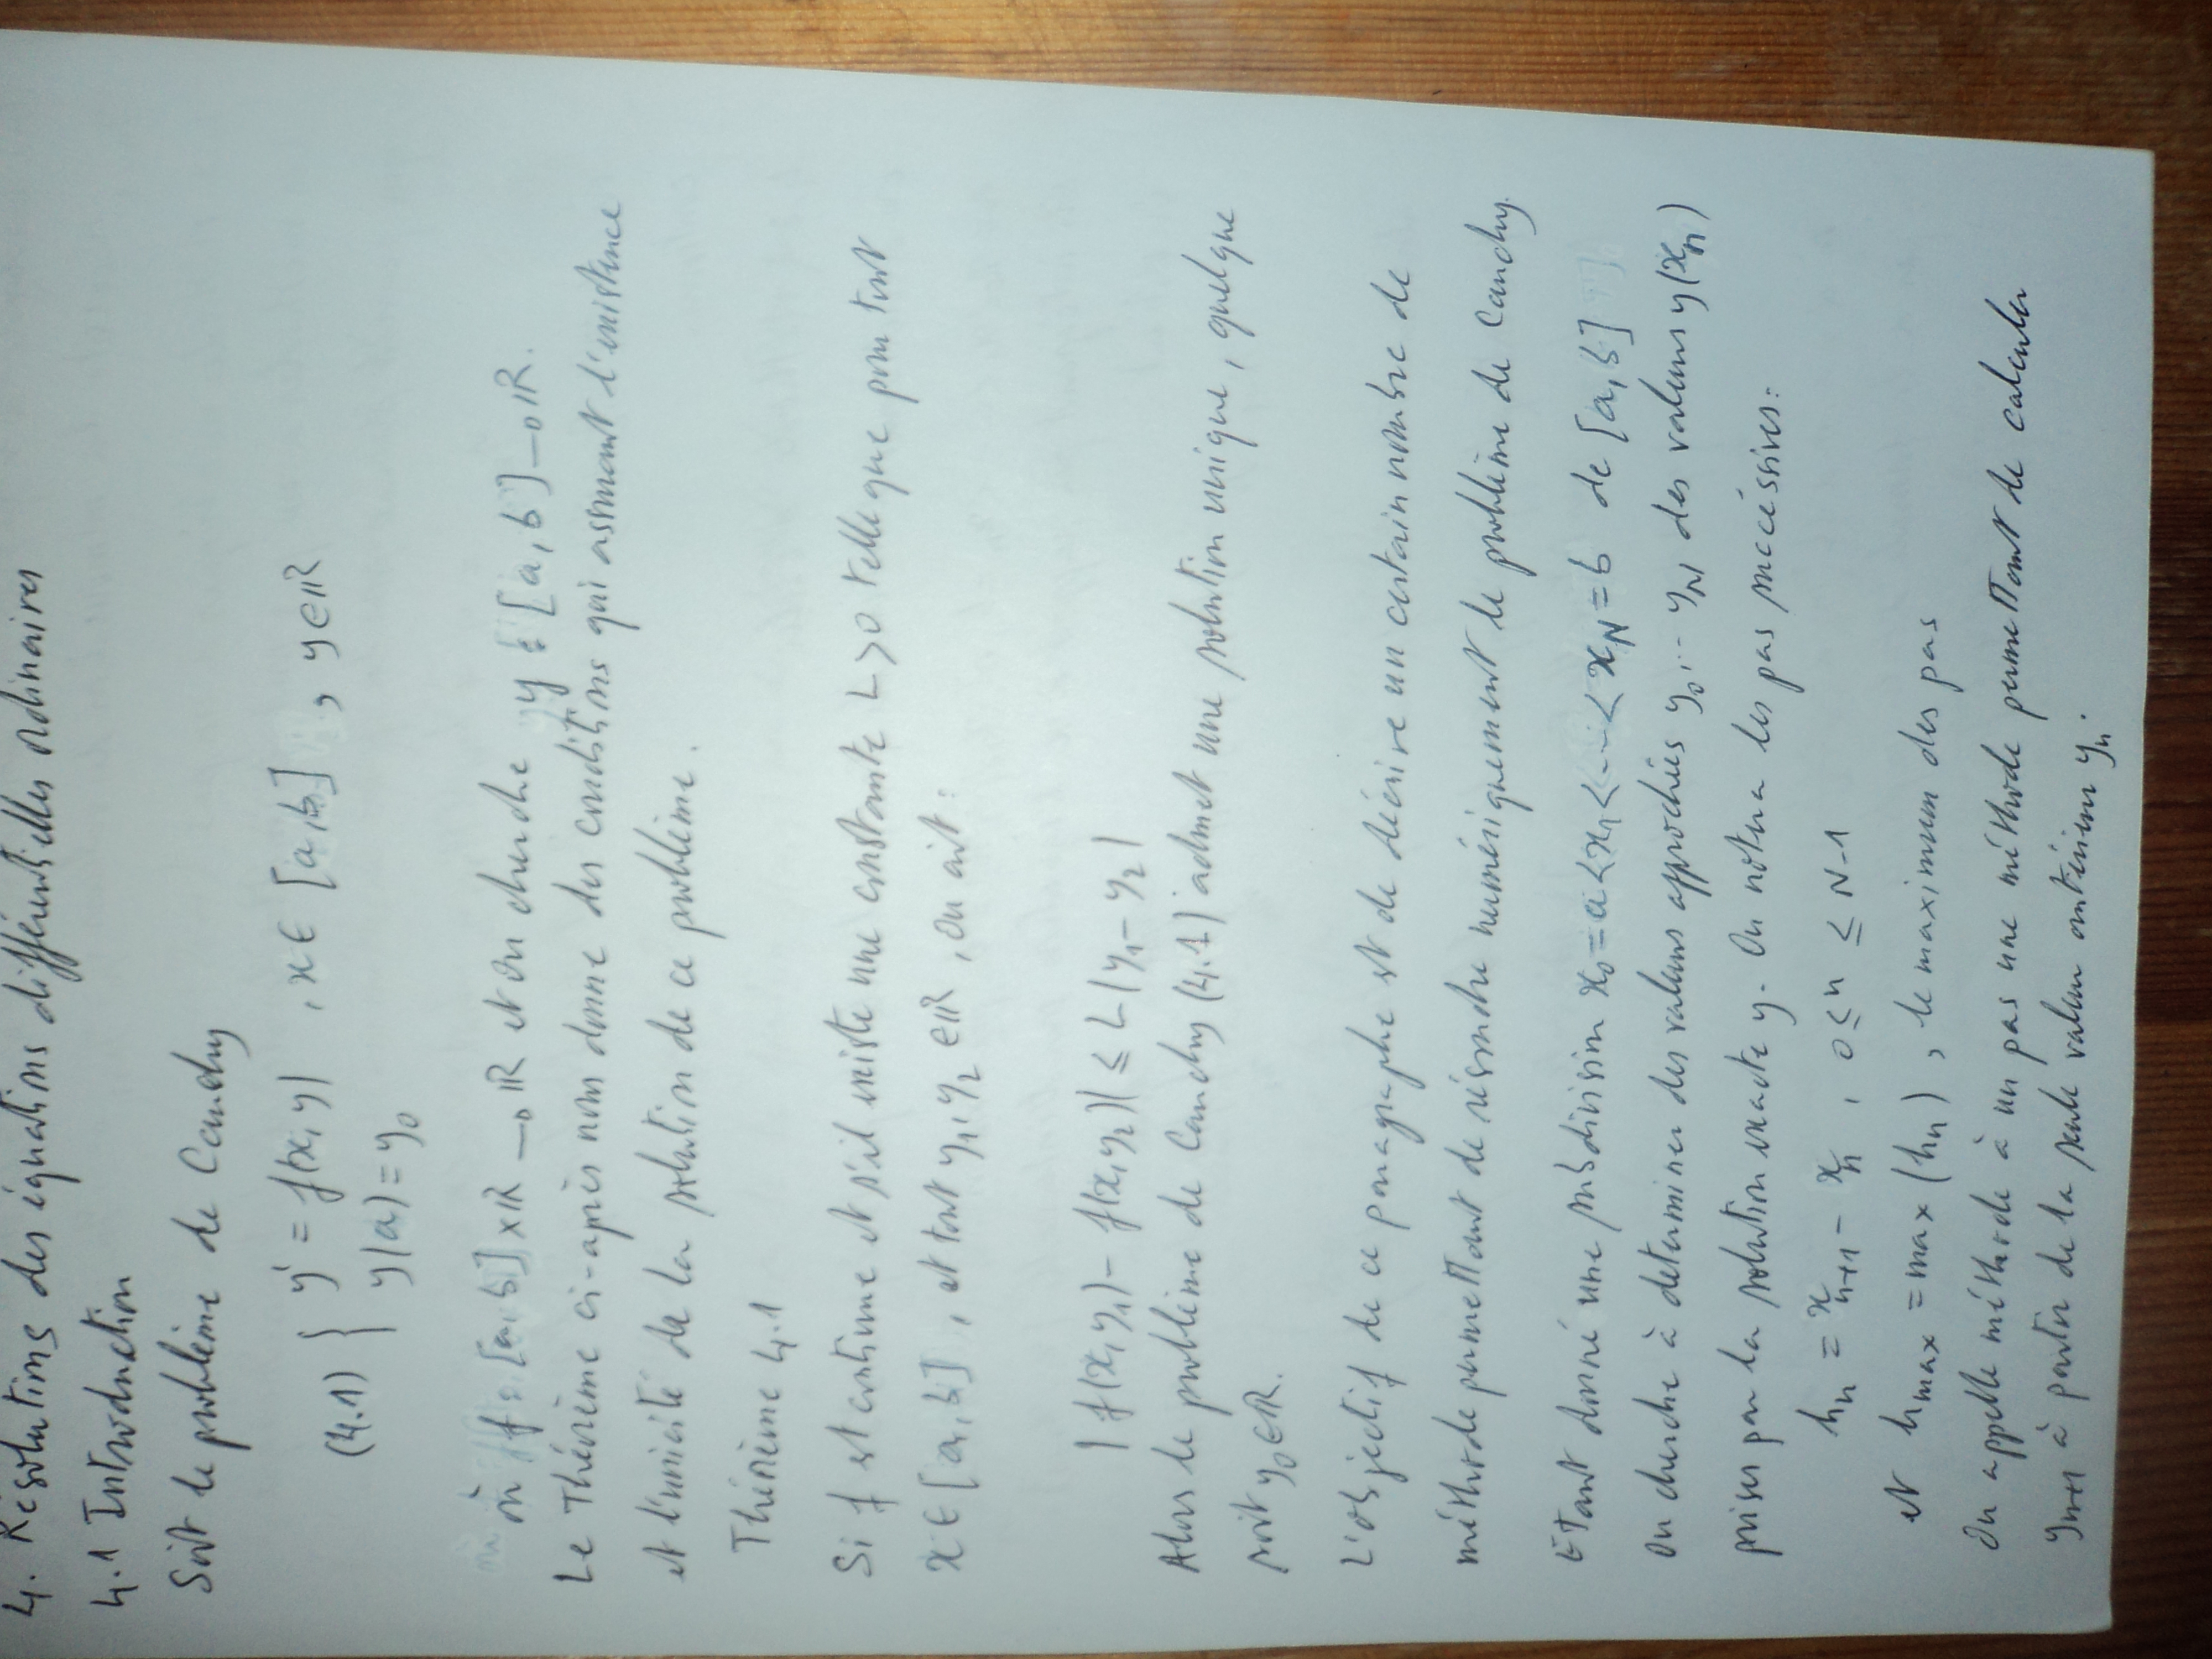 4. Résolutions des équations différentielles ordinaires
4.1 Introduction
Soit le problème de Cauchy
(4.1) { y' = f(x,y) , x ∈ [a,b] , y∈ℝ
y(a) = y₀
où f : [a,b]×ℝ → ℝ et on cherche y : [a,b] → ℝ.
Le Théorème ci-après nous donne des conditions qui assurent l'existence
et l'unicité de la solution de ce problème.
Théorème 4.1
Si f est continue et s'il existe une constante L>0 telle que pour tout
x ∈ [a,b], et tout y₁, y₂ ∈ℝ, on ait:
|f(x,y₁) - f(x,y₂)| ≤ L |y₁ - y₂|
Alors le problème de Cauchy (4.1) admet une solution unique, quelque
soit y₀∈ℝ.
L'objectif de ce paragraphe est de décrire un certain nombre de
méthode permettant de résoudre numériquement le problème de Cauchy.
Etant donné une subdivision x₀=a<x₁<...<x_N=b de [a,b]
On cherche à determiner des valeurs approchées y₀,... y_N des valeurs y(x_n)
prises par la solution exacte y. On notera les pas succéssives:
h_n = x_{n+1} - x_n , 0 ≤ n ≤ N-1
et h_max = max (h_n) , le maximum des pas
On appelle méthode à un pas une méthode permettant de calculer
y_{n+1} à partir de la seule valeur antérieur y_n.